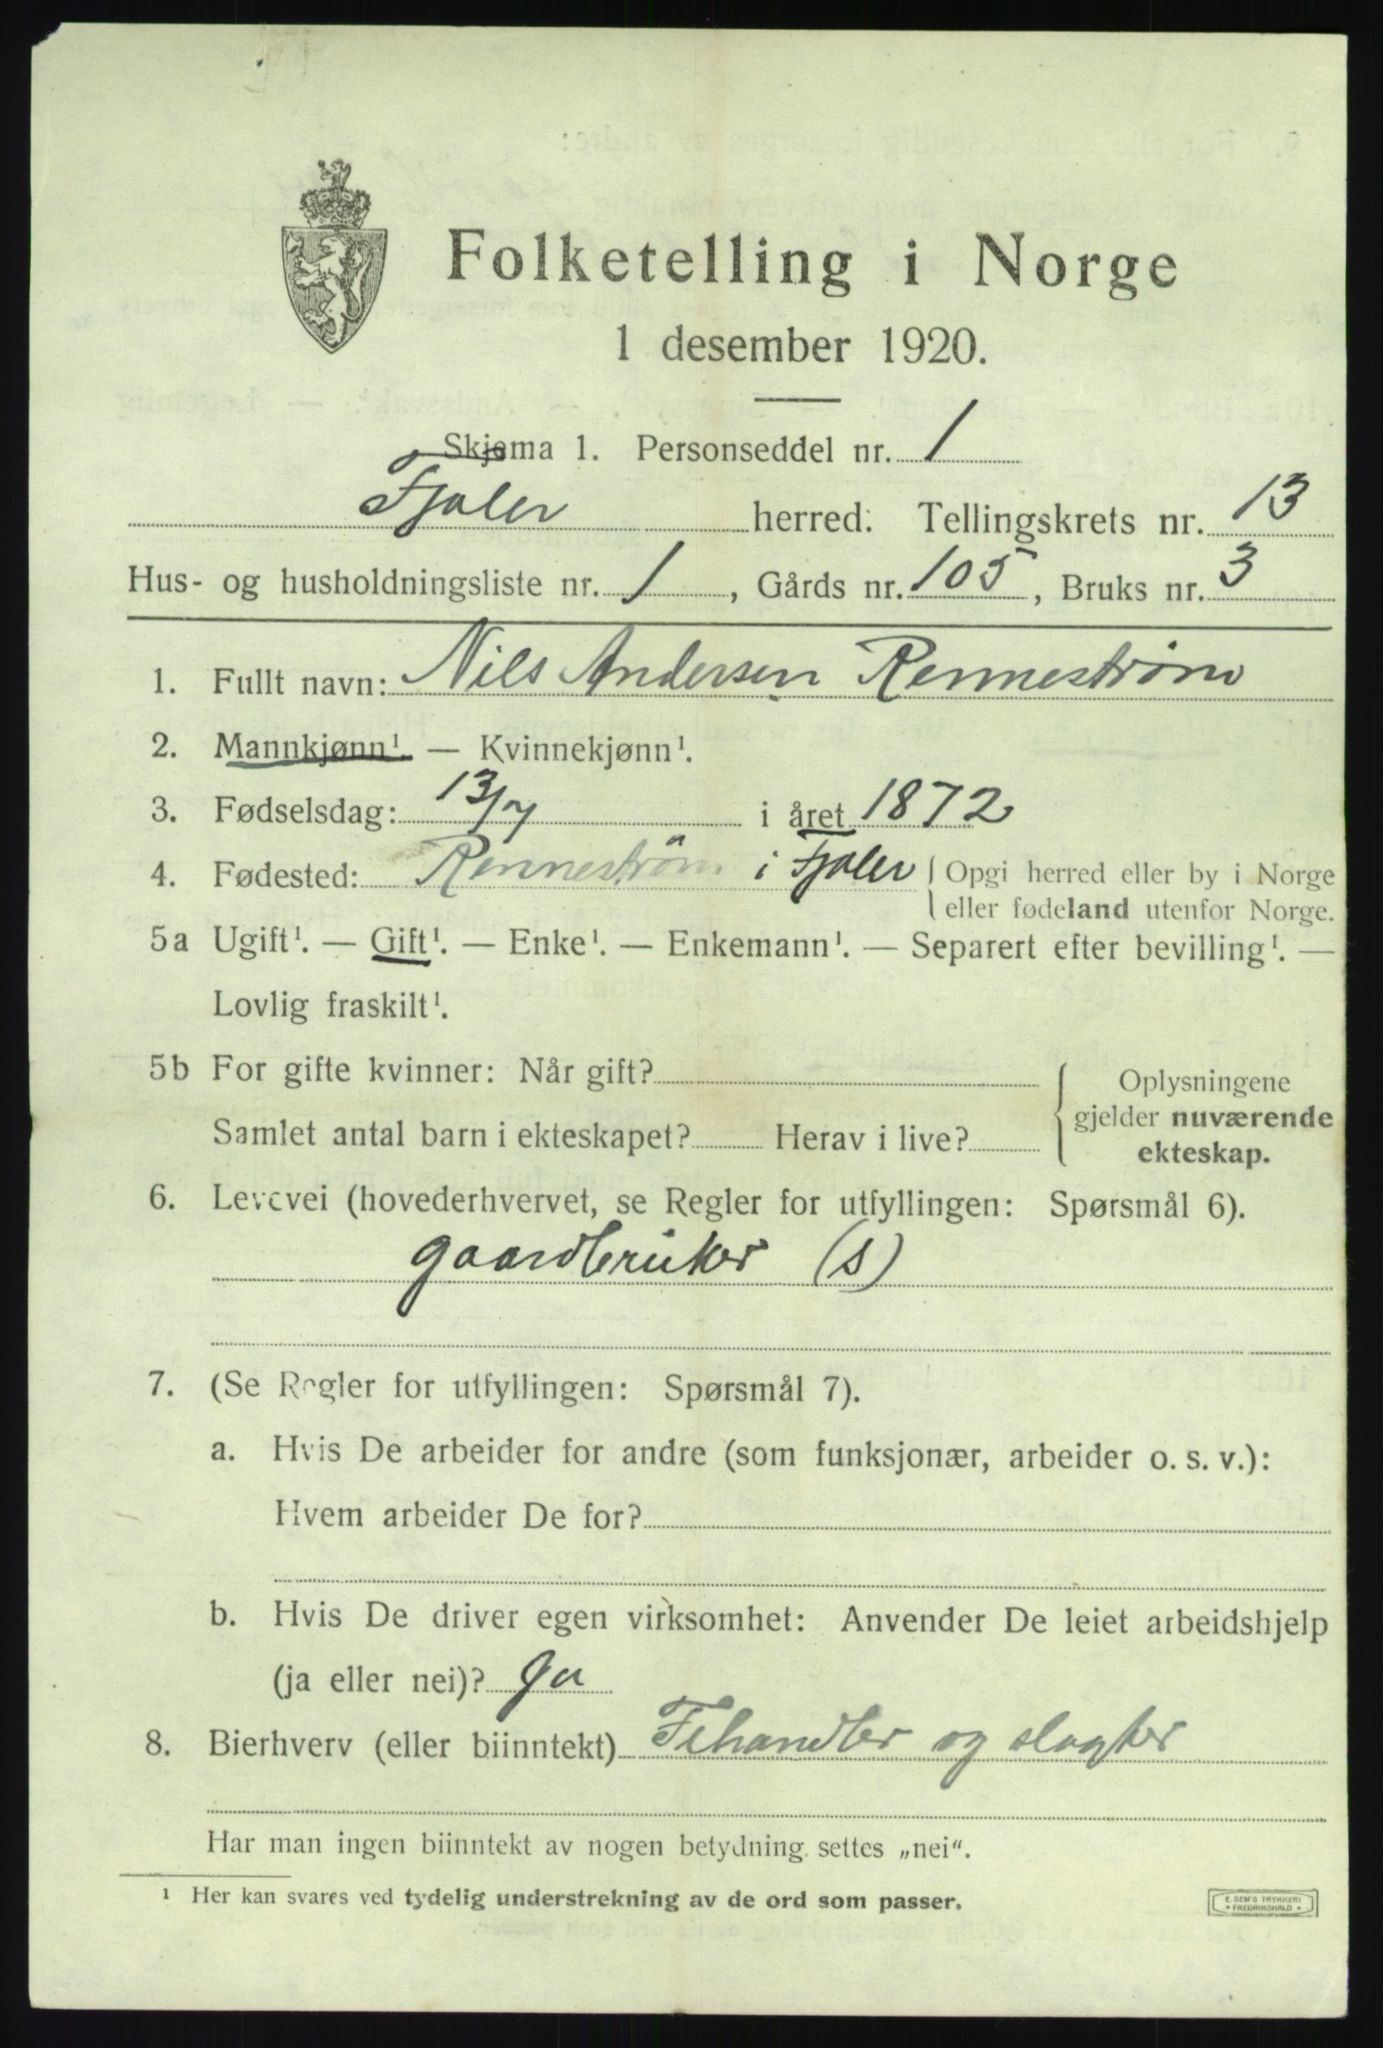 Folketelling i Norge
1 desember 1920.
Skjema 1. Personseddel nr. 1
Fjaler herred. Tellingskrets nr. 13
Hus- og husholdningsliste nr. 1, Gårds nr. 105, Bruks nr. 3
1. Fullt navn: Nils Andersen Rennestrøm
2. Mannkjønn¹. — Kvinnekjønn¹.
3. Fødselsdag: 13/7 i året 1872
4. Fødested: Renneström i Fjaler Opgi herred eller by i Norge
eller fødeland utenfor Norge.
5a Ugift¹. — Gift¹. — Enke¹. — Enkemann¹. — Separert efter bevilling¹. —
Lovlig fraskilt¹.
5b For gifte kvinner: Når gift? Oplysningene
gjelder nuværende
Samlet antal barn i ekteskapet? Herav i live?
ekteskap.
6. Levevei (hovederhvervet, se Regler for utfyllingen: Spørsmål 6).
gaardbruker (s)
7. (Se Regler for utfyllingen: Spørsmål 7).
a. Hvis De arbeider for andre (som funksjonær, arbeider o. s. v.):
Hvem arbeider De for?
b. Hvis De driver egen virksomhet: Anvender De leiet arbeidshjelp
(ja eller nei)? Ja
8. Bierhverv (eller biinntekt) Fehandler og slagter
Har man ingen biinntekt av nogen betydning settes „nei“.
¹ Her kan svares ved tydelig understrekning av de ord som passer.
E. SEM'S TRYKKERI
FREDRIKSHALD